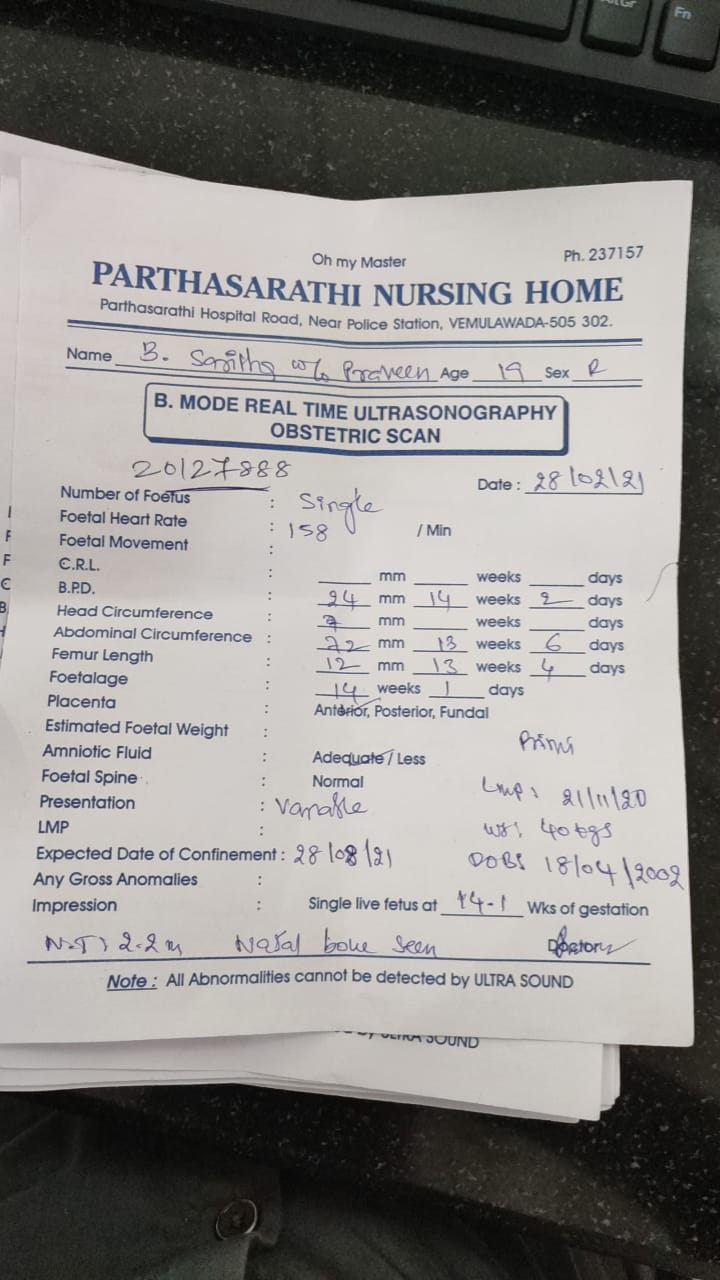 Fn
Oh my Master
Ph. 237157
PARTHASARATHI NURSING HOME
Parthasarathi Hospital Road, Near Police Station, VEMULAWADA-505 302.
Name B. w/o Praveen Age 19 Sex
B. MODE REAL TIME ULTRASONOGRAPHY
OBSTETRIC SCAN
20127888
Date : 28/02/21
Number of Foetus : Single
Foetal Heart Rate : 158 / Min
Foetal Movement :
C.R.L. : mm weeks days
B.P.D. : 24 mm 14 weeks 2 days
Head Circumference : mm weeks days
Abdominal Circumference : 72 mm 13 weeks 6 days
Femur Length : 12 mm 13 weeks 4 days
Foetalage : 14 weeks 1 days
Placenta : Anterior, Posterior, Fundal
Estimated Foetal Weight :
Primi
Amniotic Fluid : Adequate / Less
Foetal Spine : Normal
LMP: 21/11/20
Presentation : Variable
LMP :
wt: 40 kgs
Expected Date of Confinement : 28/08/21
DOB: 18/04/2002
Any Gross Anomalies :
Impression : Single live fetus at 14-1 Wks of gestation
N.T: 2.2 m Nasal bone seen Doctor
Note : All Abnormalities cannot be detected by ULTRA SOUND
by ULTRA SOUND